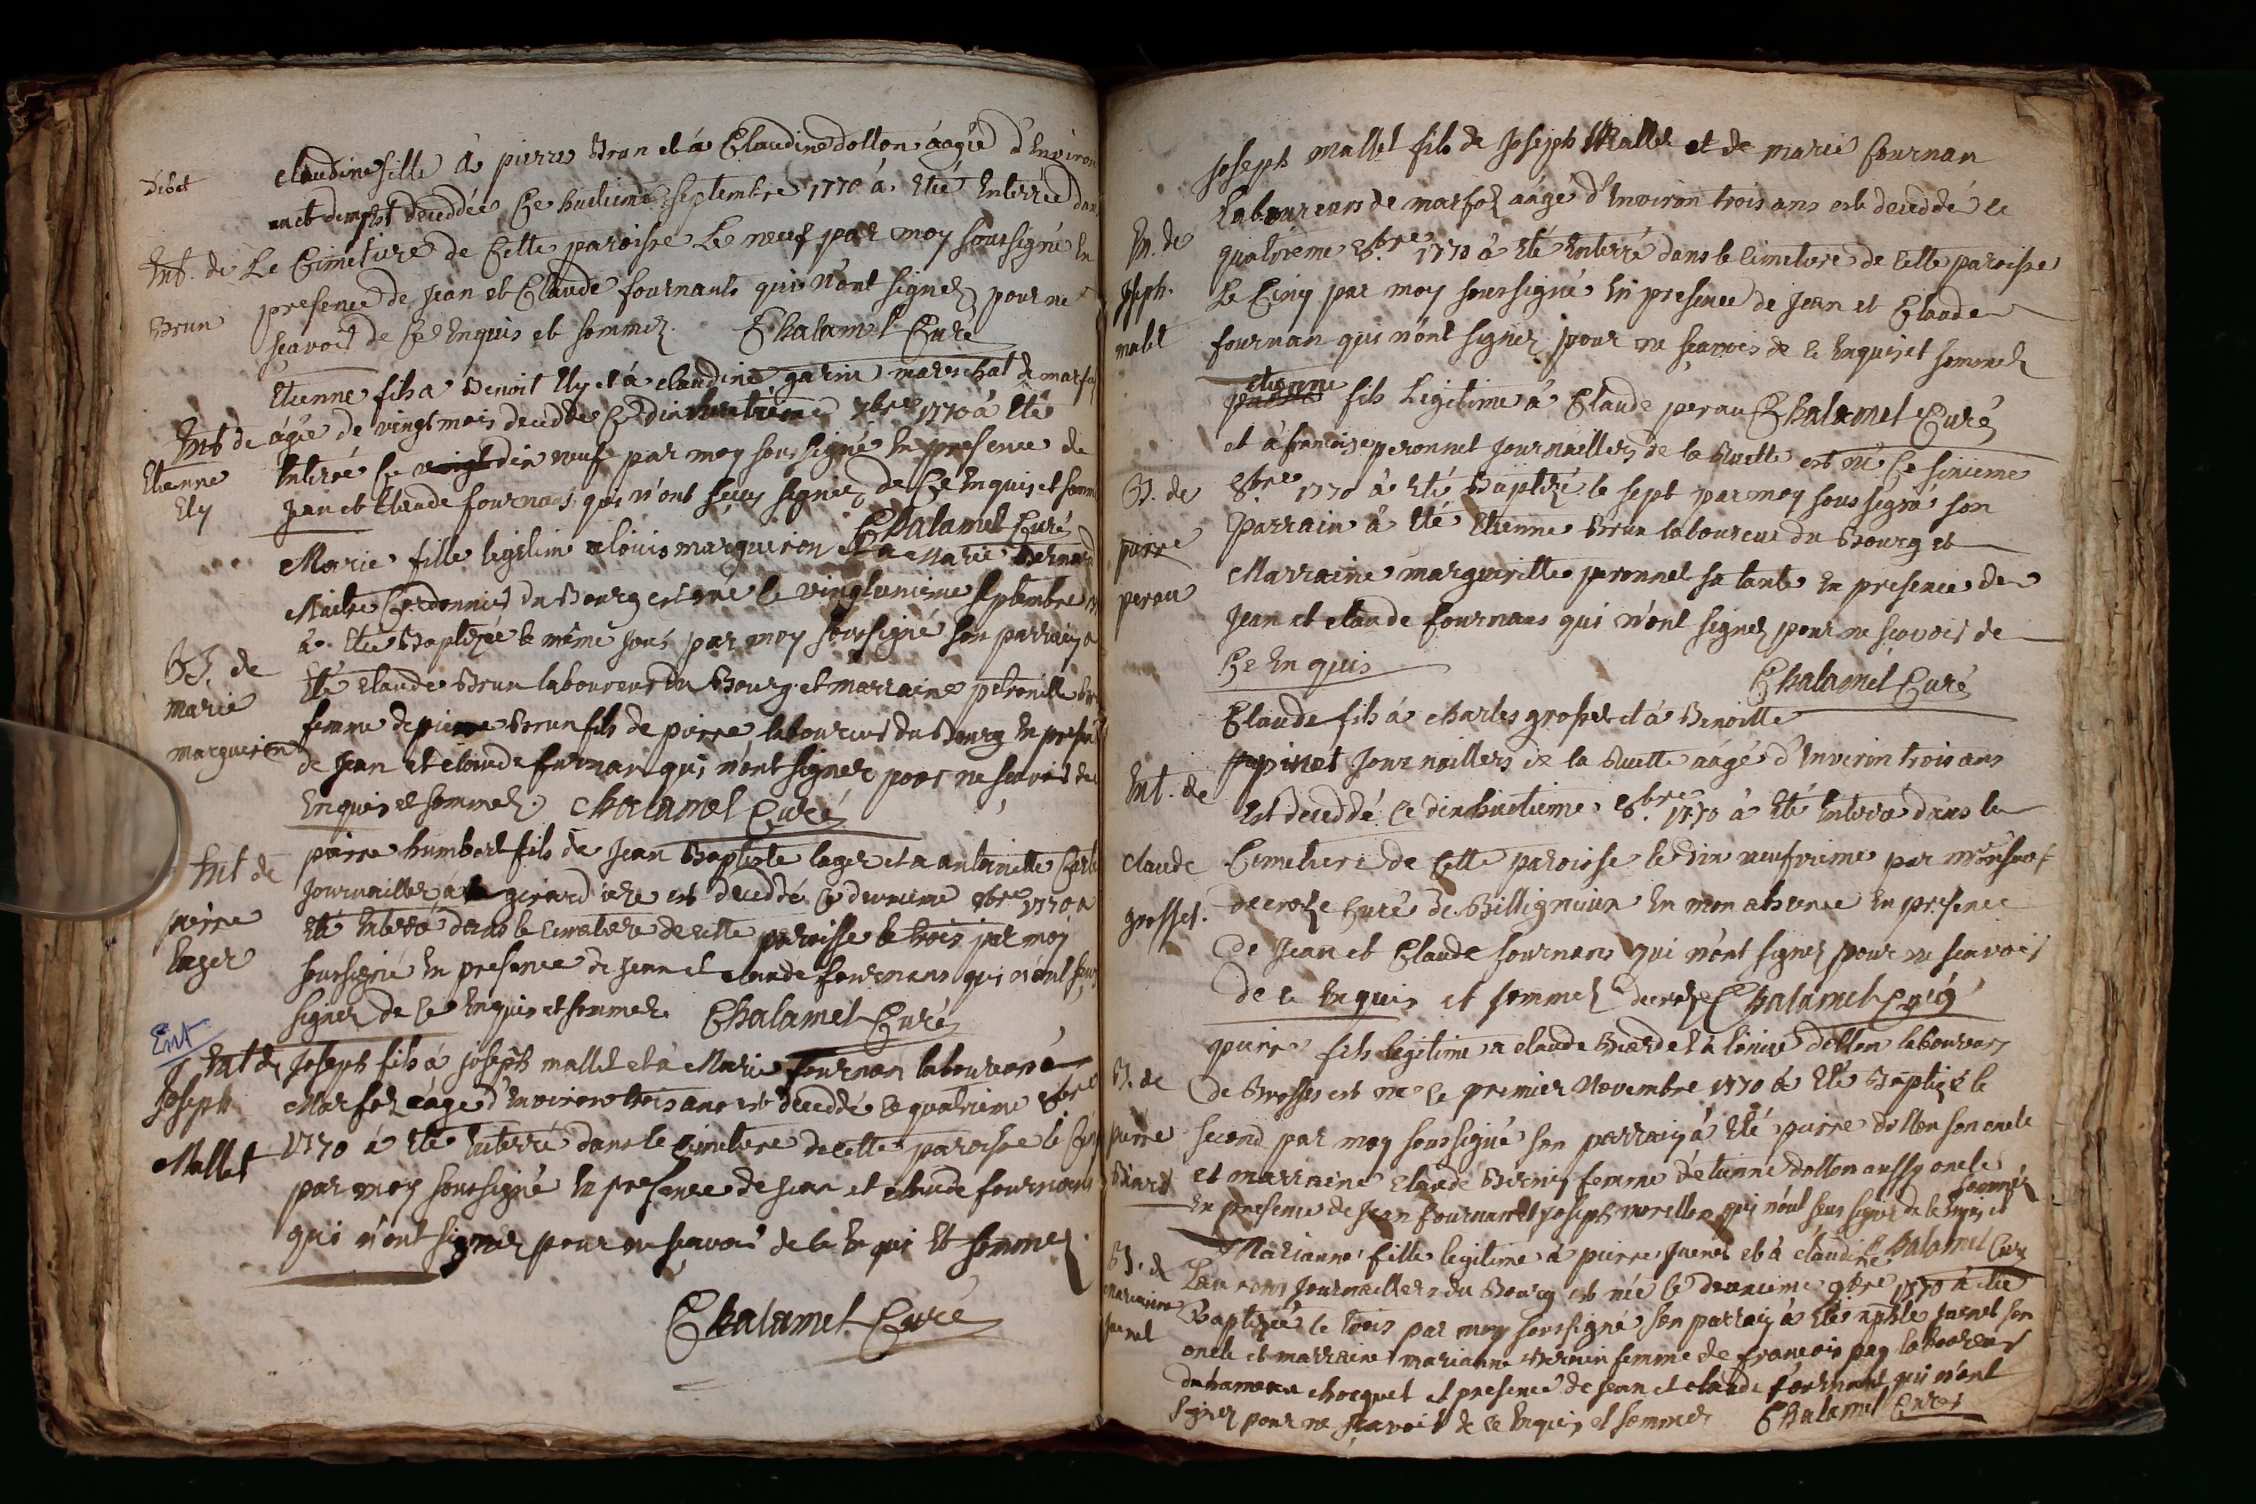 debet
claudine fille à pierre Brun et à Claudine dollon aâgée d'Environ
un et demy est decedée Ce huitieme septembre 1770 à Eté Enterrée dans
Ent. de Le Cimetiere de Cette paroisse Le neuf par moy soussigné En
Brun presence de Jean et Claude fournants qui n'ont signez pour ne
scavoir de Ce Enquis et sommez. Chalamel Curé
Etienne fils a Benoit Ely et à claudine garin mareschal de marfoz
Ent de âgée de vingt mois decedée Ce dix huitieme 7bre 1770 à Eté
Etienne Enterré Ce dix neuf par moy sous signé En presence de
Ely Jean et Claude fournans qui n'ont sçus signer de Ce Enquis et somm
Chalamel Curé
Marie fille legitime a louis marguiron et a Marie Bernard
Maitre Cordonnier du Bourg est née le vingtunieme septembre
à Etée Baptizée le même jour par moy soussigné son parrain a
B. de Eté Claude Brun laboureur du Bourg et marraine petronille
marie femme de pierre Brun fils de pierre laboureur du Bourg En presen
marguiron de Jean et claude furnan qui n'ont signer pour ne scavoir de
Enquis et sommez. Chalamel Curé
pierre humbert fils de Jean Baptiste lager et a antoinette
Ent de Journaillier à girardiere est decedé Ce deuxieme 8bre 1770 a
pierre Eté Enterré dans le cimetiere de cette paroisse le trois par moy
lager soussigné En presence de Jean et claude fournans qui n'ont scus
signez de Ce Enquis et sommez. Chalamel Curé
Ent
Ent de Joseph fils à joseph mallet et à Marie fournan laboureurs à
Joseph Marfoz âagé d'Environ trois ans est decedé le quatrieme 8bre
Mallet 1770 à Eté Enterré dans le cimetiere de cette paroisse le Cinq
par moy soussigné En presence de Jean et claude fournans
qui n'ont signez pour ne scavoir de Ce Enquis Et sommez.
Chalamel Curé
Joseph mallet fils de Joseph Mallet et de marie fournan
Laboureurs de marfoz aâgé d'Environ trois ans est decedé le
En. de quatrieme 8bre 1770 à Eté Enterré dans le Cimetiere de Cette paroisse
Joseph Le Cinq par moy soussigné En presence de Jean et Claude
malet fournan qui n'ont signez pour ne scavoir de Ce Enquis et sommez
etienne
fils Legitime à Claude perau Chalamel Curé
et à francoise peronnet Journailliers de la Buette est né Ce sixieme
B. de 8bre 1770 à Eté Baptizé le sept par moy soussigné son
pierre parrain à Eté Etienne Brun laboureur du Bourg et
perau Marraine margueritte peronnet sa tante En presence de
Jean et claude fournans qui n'ont signez pour ne scavoir de
Ce Enquis
Chalamel Curé
Claude fils à charles grosset et à Benoitte
papinet Journailliers de la Buette aâgé d'Environ trois ans
Ent. de Est decedé Ce dix huitieme 8bre 1770 à Eté Enterré dans le
claude Cimetiere de Cette paroisse le dix neufvieme par
grosset. decroze Curé de Billignieux En mon absence En presence
De Jean et Claude fournans qui n'ont signez pour ne scavoir
de Ce Enquis et sommez decroze Chalamel Curé
pierre fils legitime a claude Biard et à dollon laboureurs
B. de De Brosses est né le premier Novembre 1770 à Eté Baptizé le
pierre second par moy soussigné son parrain à Eté pierre dollon son oncle
Biard et marraine Claude Bernin femme d'etienne dollon aussy oncle
En presence de Jean fournan et joseph morellon qui n'ont scus signer de Ce Enquis et sommés
Chalamel Curé
Marianne fille legitime à pierre Juenet et à claudine
B. de Laurens Journailliers du Bourg est née le deuxieme 9bre 1770 à eté
marianne Baptizée le trois par moy soussigné son parrain à Eté Juenet son
Juenet oncle et marraine marianne Bernin femme de françois pey laboureur
du hameau chocquet et presence de Jean et claude fournant qui n'ont
signez pour ne scavoir de Ce Enquis et sommez Chalamel Curé